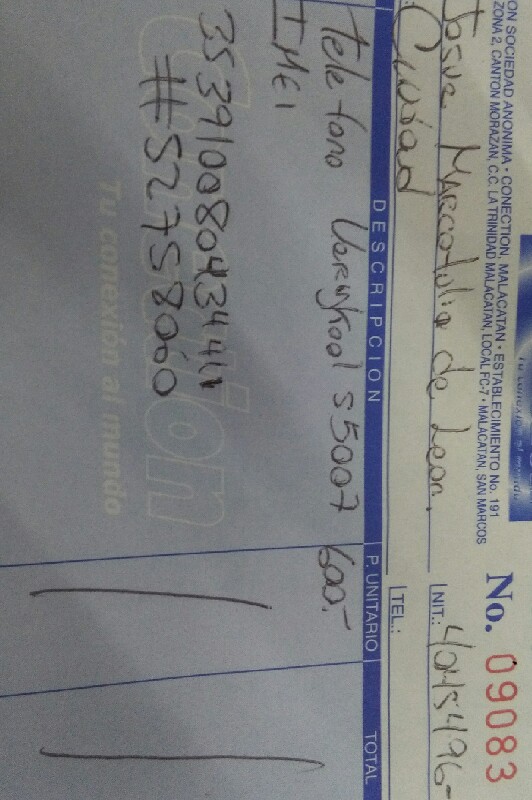 ON SOCIEDAD ANONIMA • CONECTION, MALACATAN • ESTABLECIMIENTO No. 191
ZONA 2, CANTON MORAZAN, C.C. LA TRINIDAD MALACATAN, LOCAL FC-7 • MALACATAN, SAN MARCOS
Tu conexión al mundo
No. 09083
Josue Marcotulio de Leon.
NIT.:
Ciudad
TEL.:
DESCRIPCION P. UNITARIO TOTAL
telefono s5007 600.-
IMEI
#52758000
Tu conexión al mundo